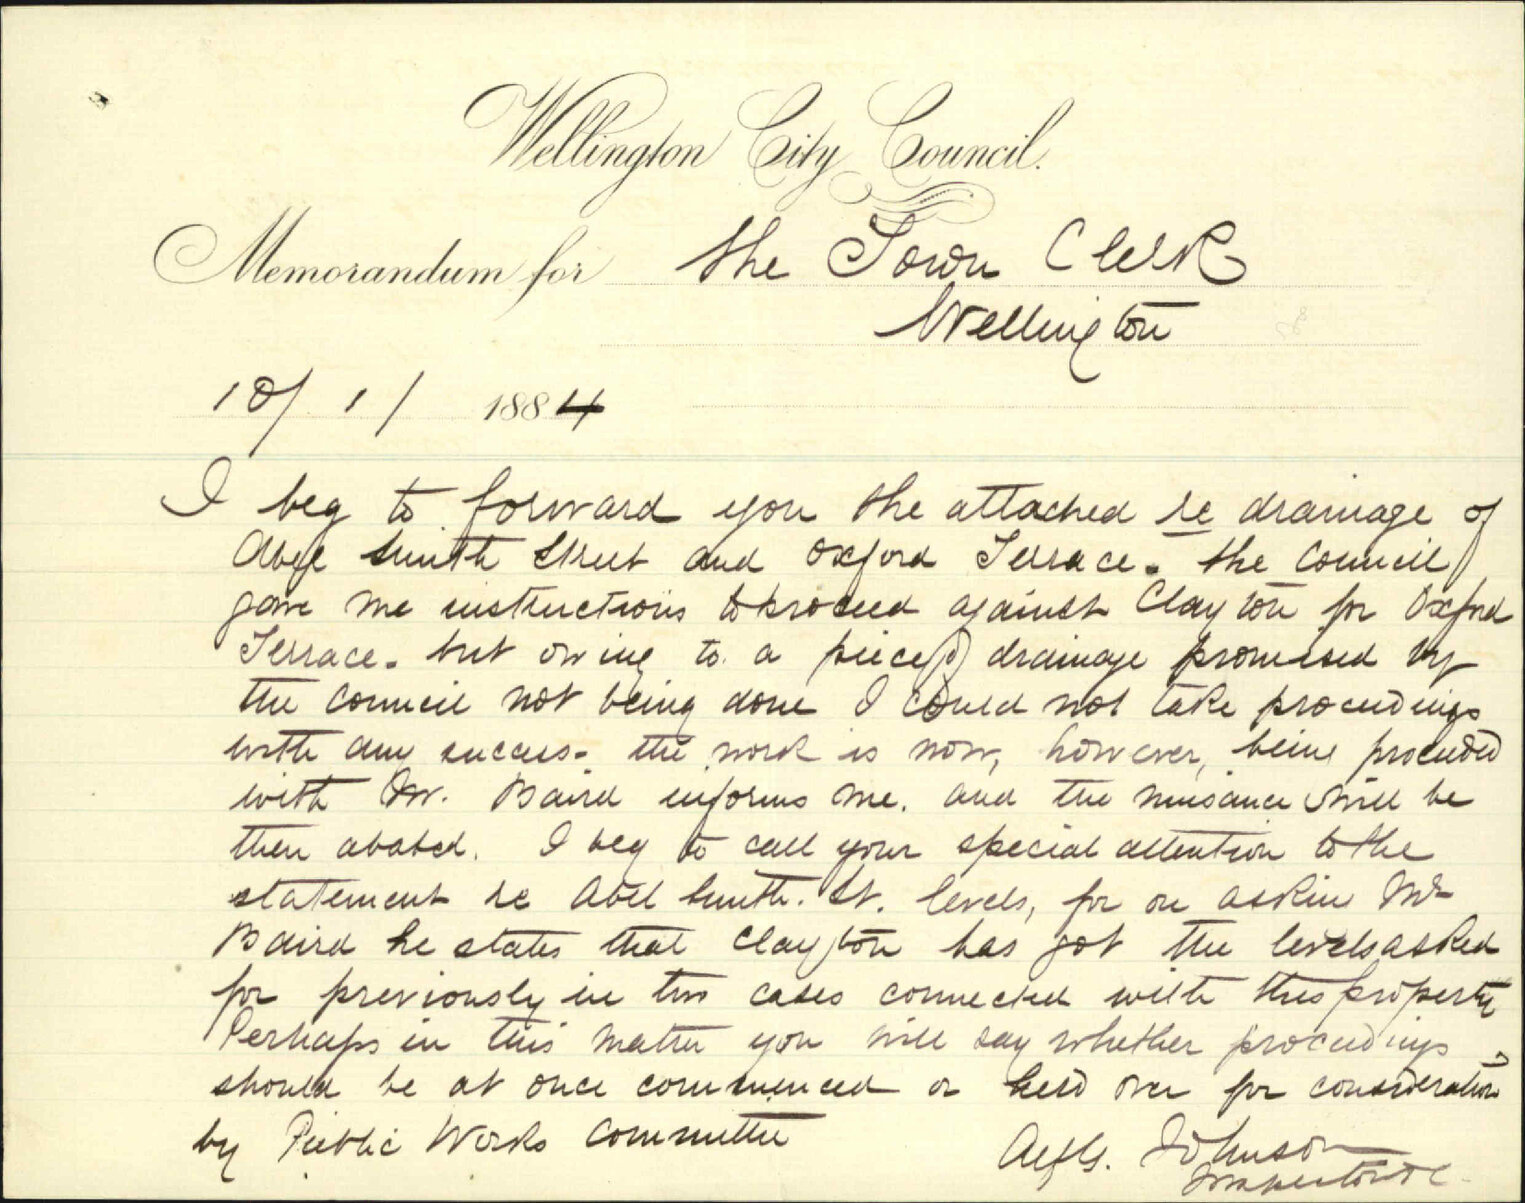 Wellington City Council.
Memorandum for the Town Clerk
Wellington
10/ 1 / 1884
I beg to forward you the attached re drainage of
Abel Smith Street and Oxford Terrace. The Council
gave me instructions to proceed against Clayton for Oxford
Terrace. but owing to a piece of drainage promised by
the Council not being done I could not take proceedings
with any success. the work is now, however, being proceeded
with Mr. Baird informs me. and the nuisance will be
then abated. I beg to call your special attention to the
statement re Abel Smith. St. levels, for on asking Mr
Baird he states that Clayton has got the levels asked
for previously in two cases connected with this property
Perhaps in this matter you will say whether proceedings
should be at once commenced or held over for consideration
by Public Works Committee
Johnson
Inspector